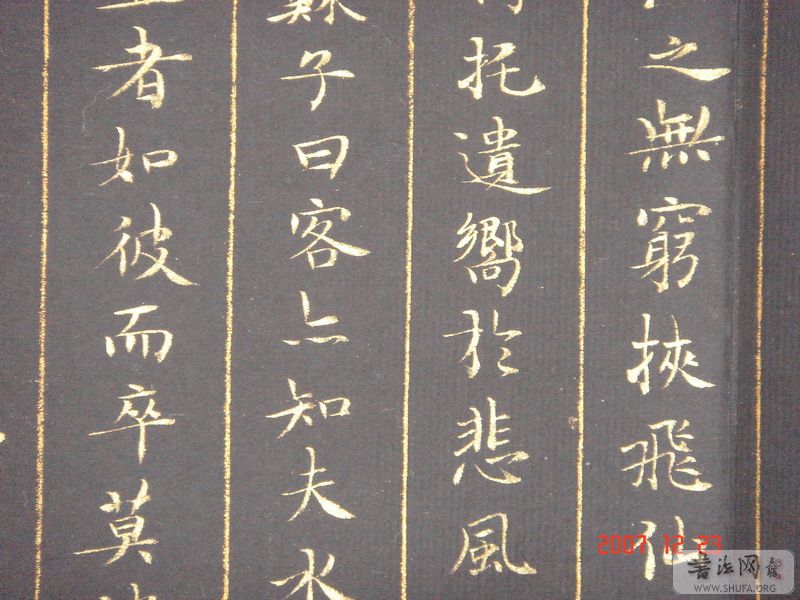 之無窮挾飛仙
托遺嚮於悲風
蘇子曰客亦知夫水
者如彼而卒莫
2007 12 23
書法网
WWW.SHUFA.ORG